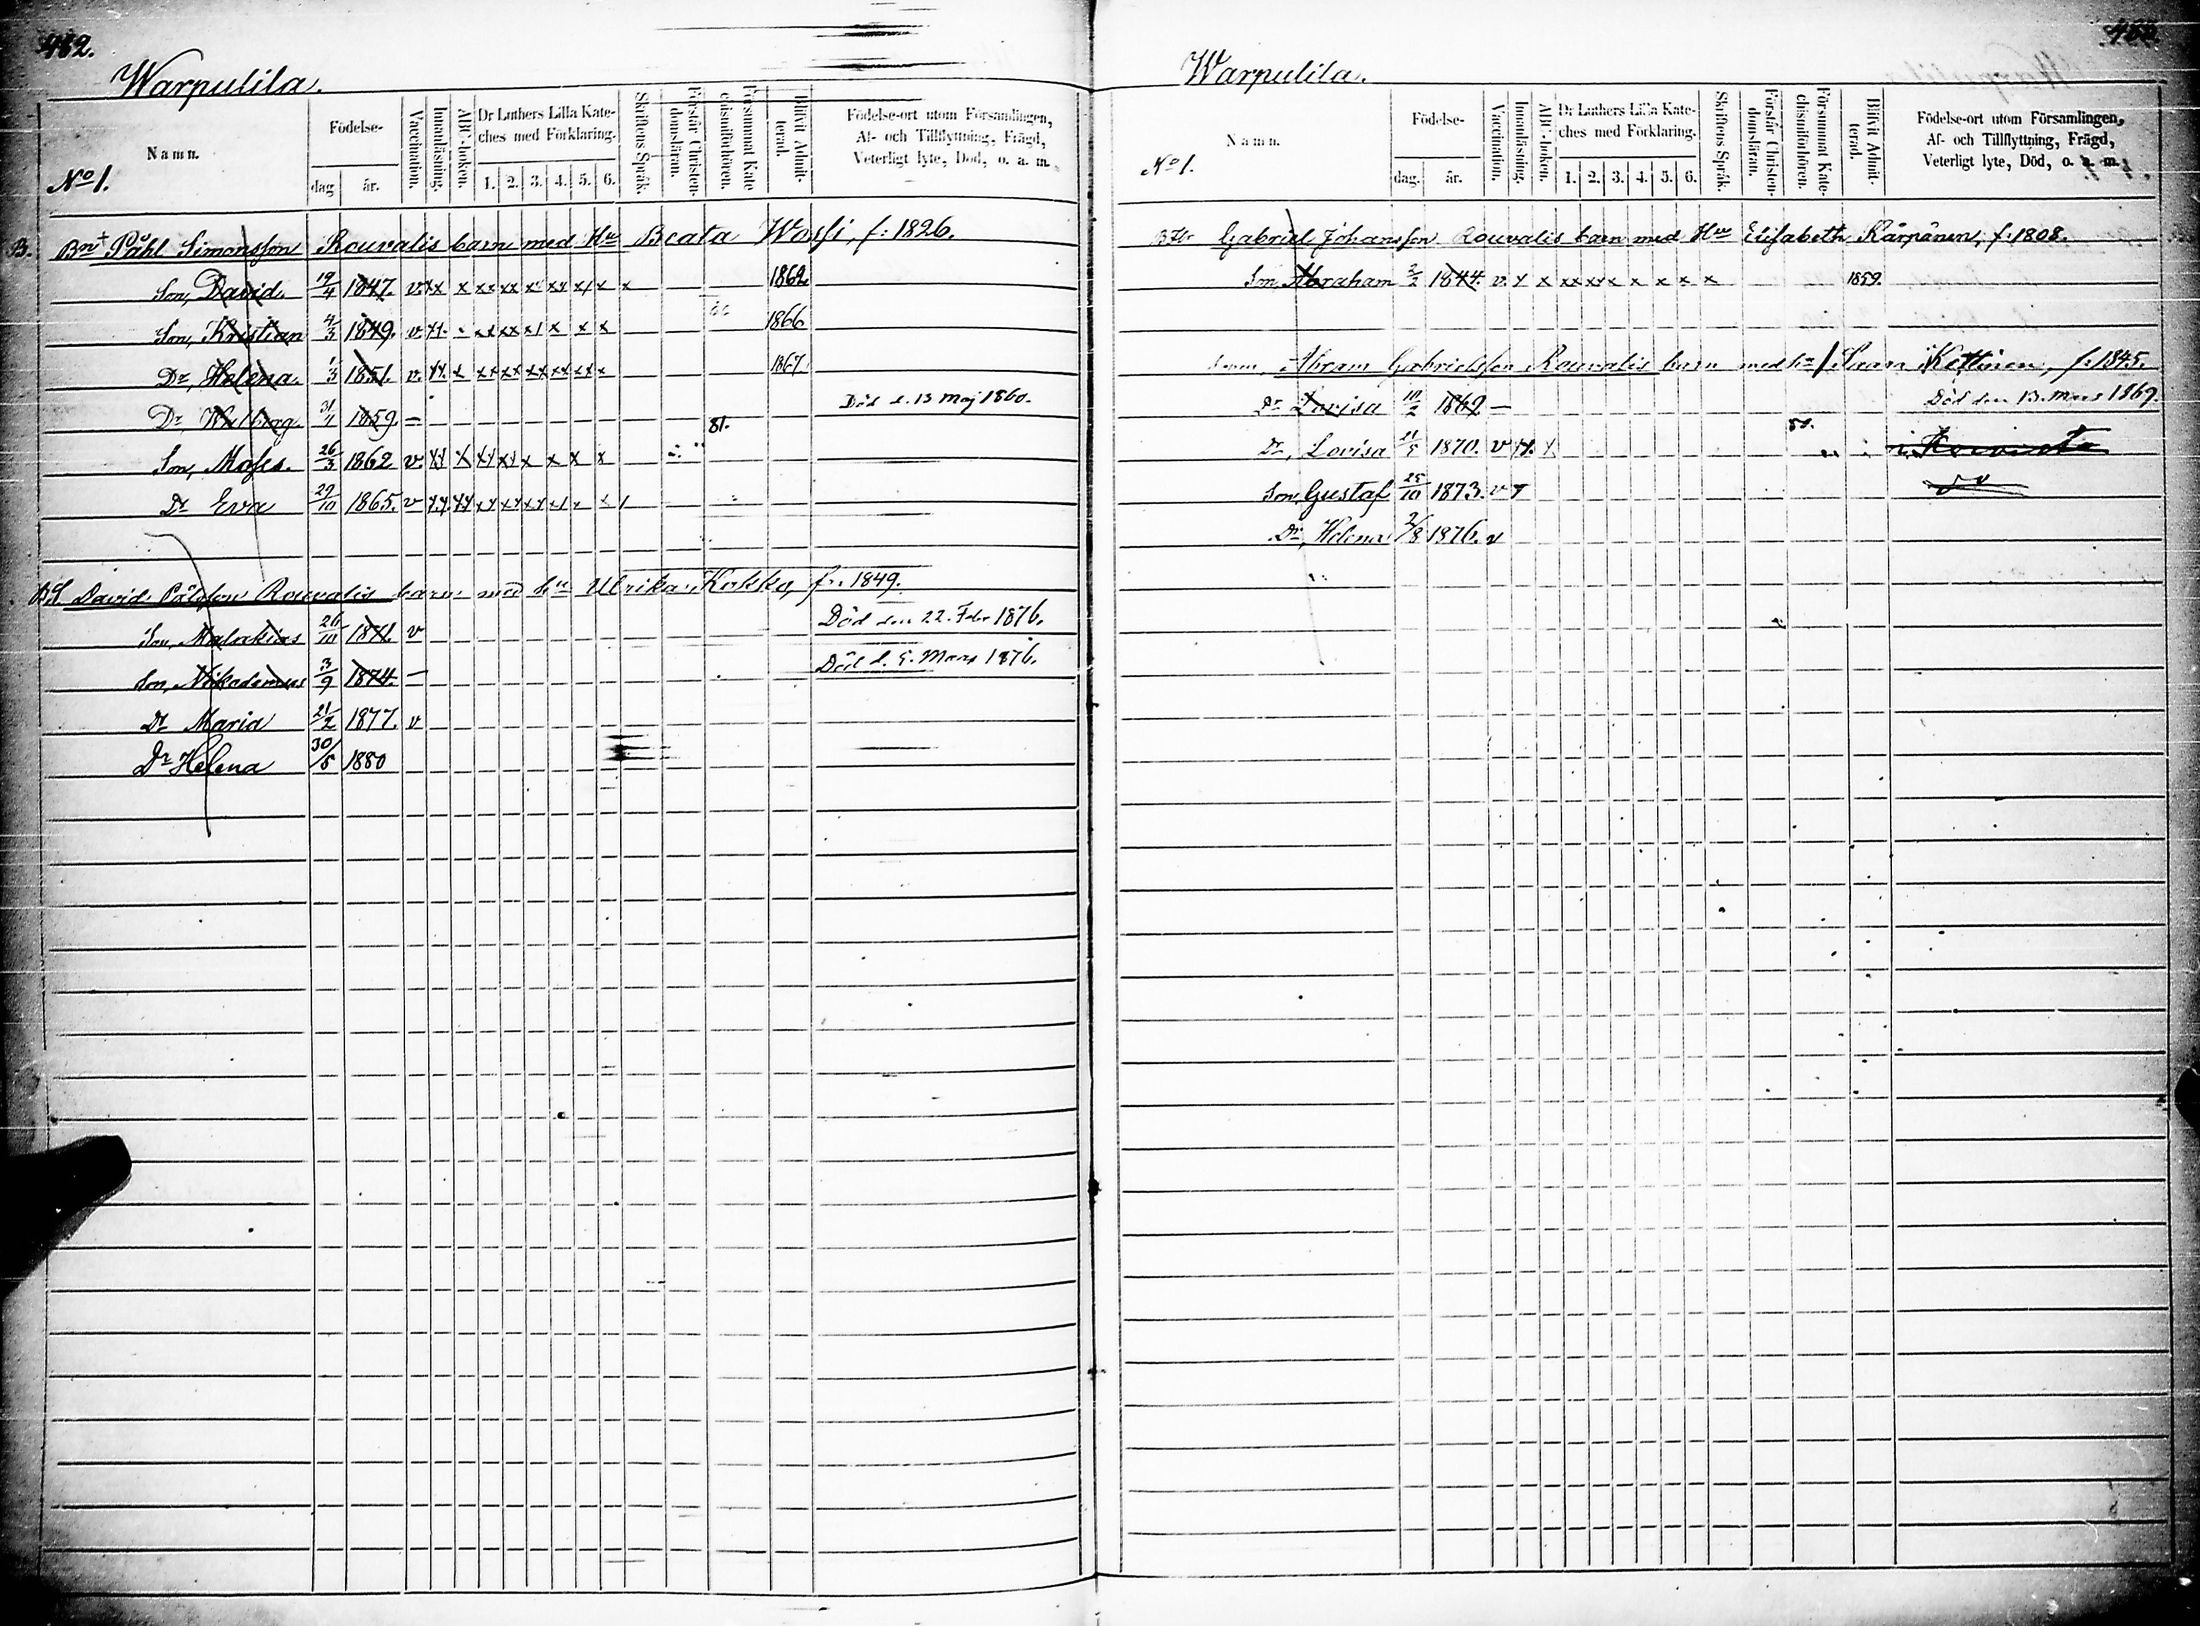 482.
Warpulila.
Namn.
No 1.
Födelse-
dag
år.
Vaccination.
Innanläsning.
ABC-boken.
Dr Luthers Lilla Kate-
ches med Förklaring.
1. 2. 3. 4. 5. 6.
Skriftens Språk.
Förstår Christen-
domsläran.
Försummat Kate
chismiförhören.
Blifvit Admit-
terad.
Födelse-ort utom Församlingen,
Af- och Tillflyttning, Frägd,
Veterligt lyte, Död, o. a. m.
B. Bn + Påhl Simonsson Rouvalis barn med Hu Beata Wossi, f: 1826.
Son, David. 19/4 1847. v. xx x xx xx x xx x x x 1862
Son, Kristian 4/3 1849. v. xx xx xx x x x x 1866
Dr, Helena. 1/3 1851. v. xx x xx xx xx xx xx x 1867
Dr, Walborg 1859. — Död d. 13 Maj 1860.
81.
Son, Moses. 26/3 1862 v. xx x xx xx x x x x
Dr Eva 29/10 1865. v xx xx xx xx xx x x x
BS. David Pålsson Rouvalis barn med hu Ulrika Kokko, f. 1849.
Son, Malakias 26/10 1871. v Död den 22. Febr 1876.
Son, Nikodemus 3/9 1874. — Död d. 5. Mars 1876.
Dr Maria 21/2 1877. v
Dr Helena 30/5 1880
Warpulila.
Namn.
No 1.
Födelse-
dag.
år.
Vaccination.
Innanläsning.
ABC-boken.
Dr Luthers Lilla Kate-
ches med Förklaring.
1. 2. 3. 4. 5. 6.
Skriftens Språk.
Förstår Christen-
domsläran.
Försummat Kate-
chismiförhören.
Blifvit Admit-
terad.
Födelse-ort utom Församlingen,
Af- och Tillflyttning, Frägd,
Veterligt lyte, Död, o. a. m.
Gabriel Johansson Rouvalis barn med Hu Elisabeth Kärpänen, f: 1808.
Son, Abraham 2/2 1844. v. x x xx xx x x x x x 1859.
Abram Gabrielsson Rouvalis barn med hu Susan Kettinen, f: 1845.
Dr Lovisa 10/2 1869 — Död den 13. Mars 1869.
Dr, Lovisa 1870. v x. x
Son, Gustaf 25/10 1873. v x
Dr, Helena 2/8 1876. v